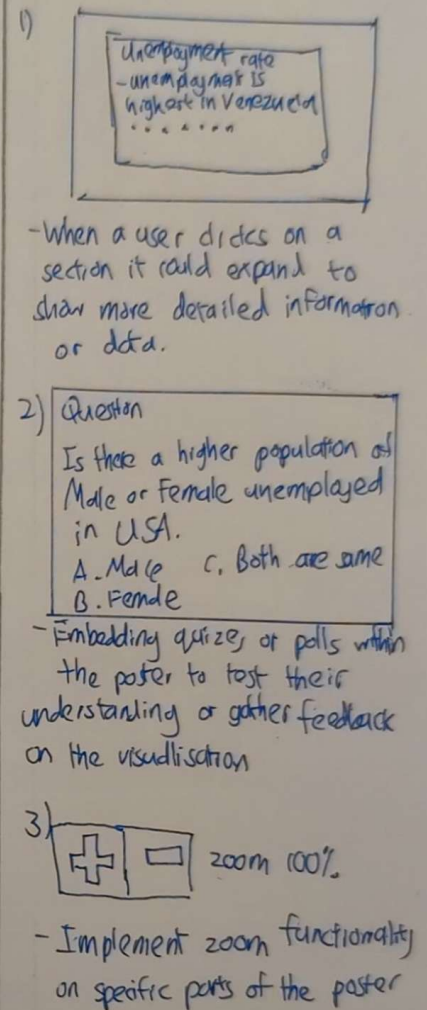 1)
Unempoyment rate
- unempoyment is
highest in Venezuela
.......
- When a user clicks on a
section it could expand to
show more detailed information
or data.
2) Question
Is there a higher population of
Male or Female unemployed
in USA.
A. Male C. Both are same
B. Female
- Embedding quizes or polls within
the poster to test their
understanding or gather feedback
on the visudlisation
3)
zoom 100%
- Implement zoom functionality
on specific parts of the poster